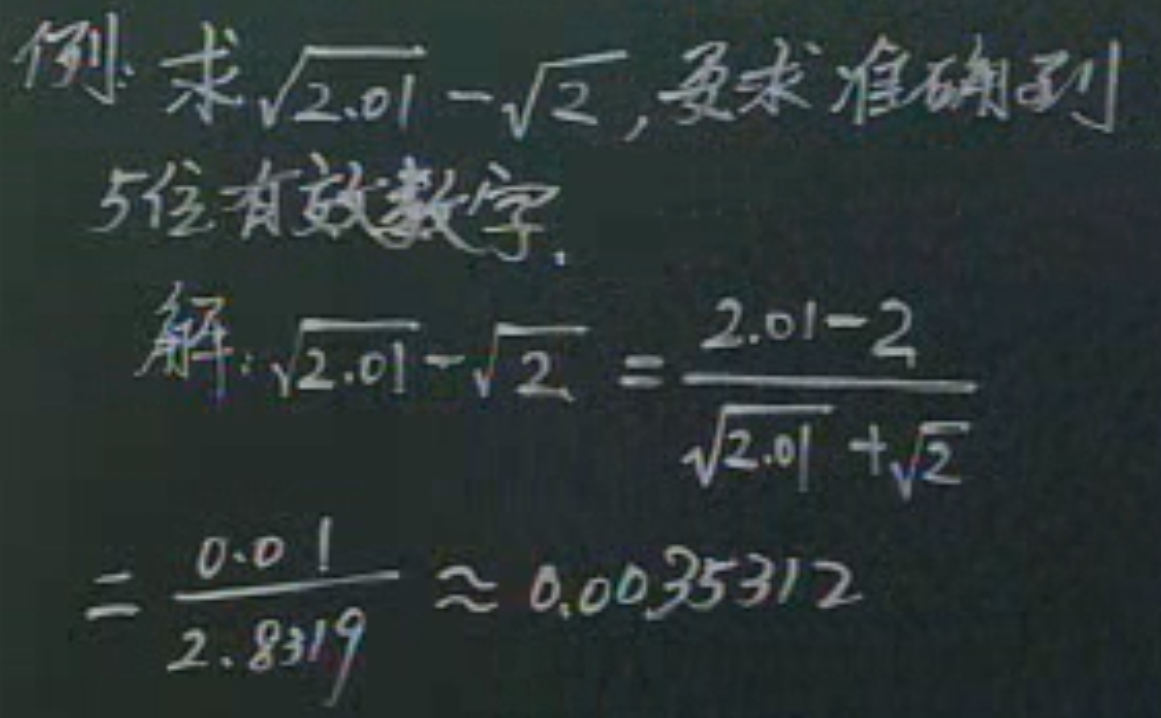 例: 求√2.01 - √2, 要求准确到
5位有效数字.
解: √2.01 - √2 = (2.01-2)/(√2.01 + √2)
= 0.01/2.8319 ≈ 0.0035312